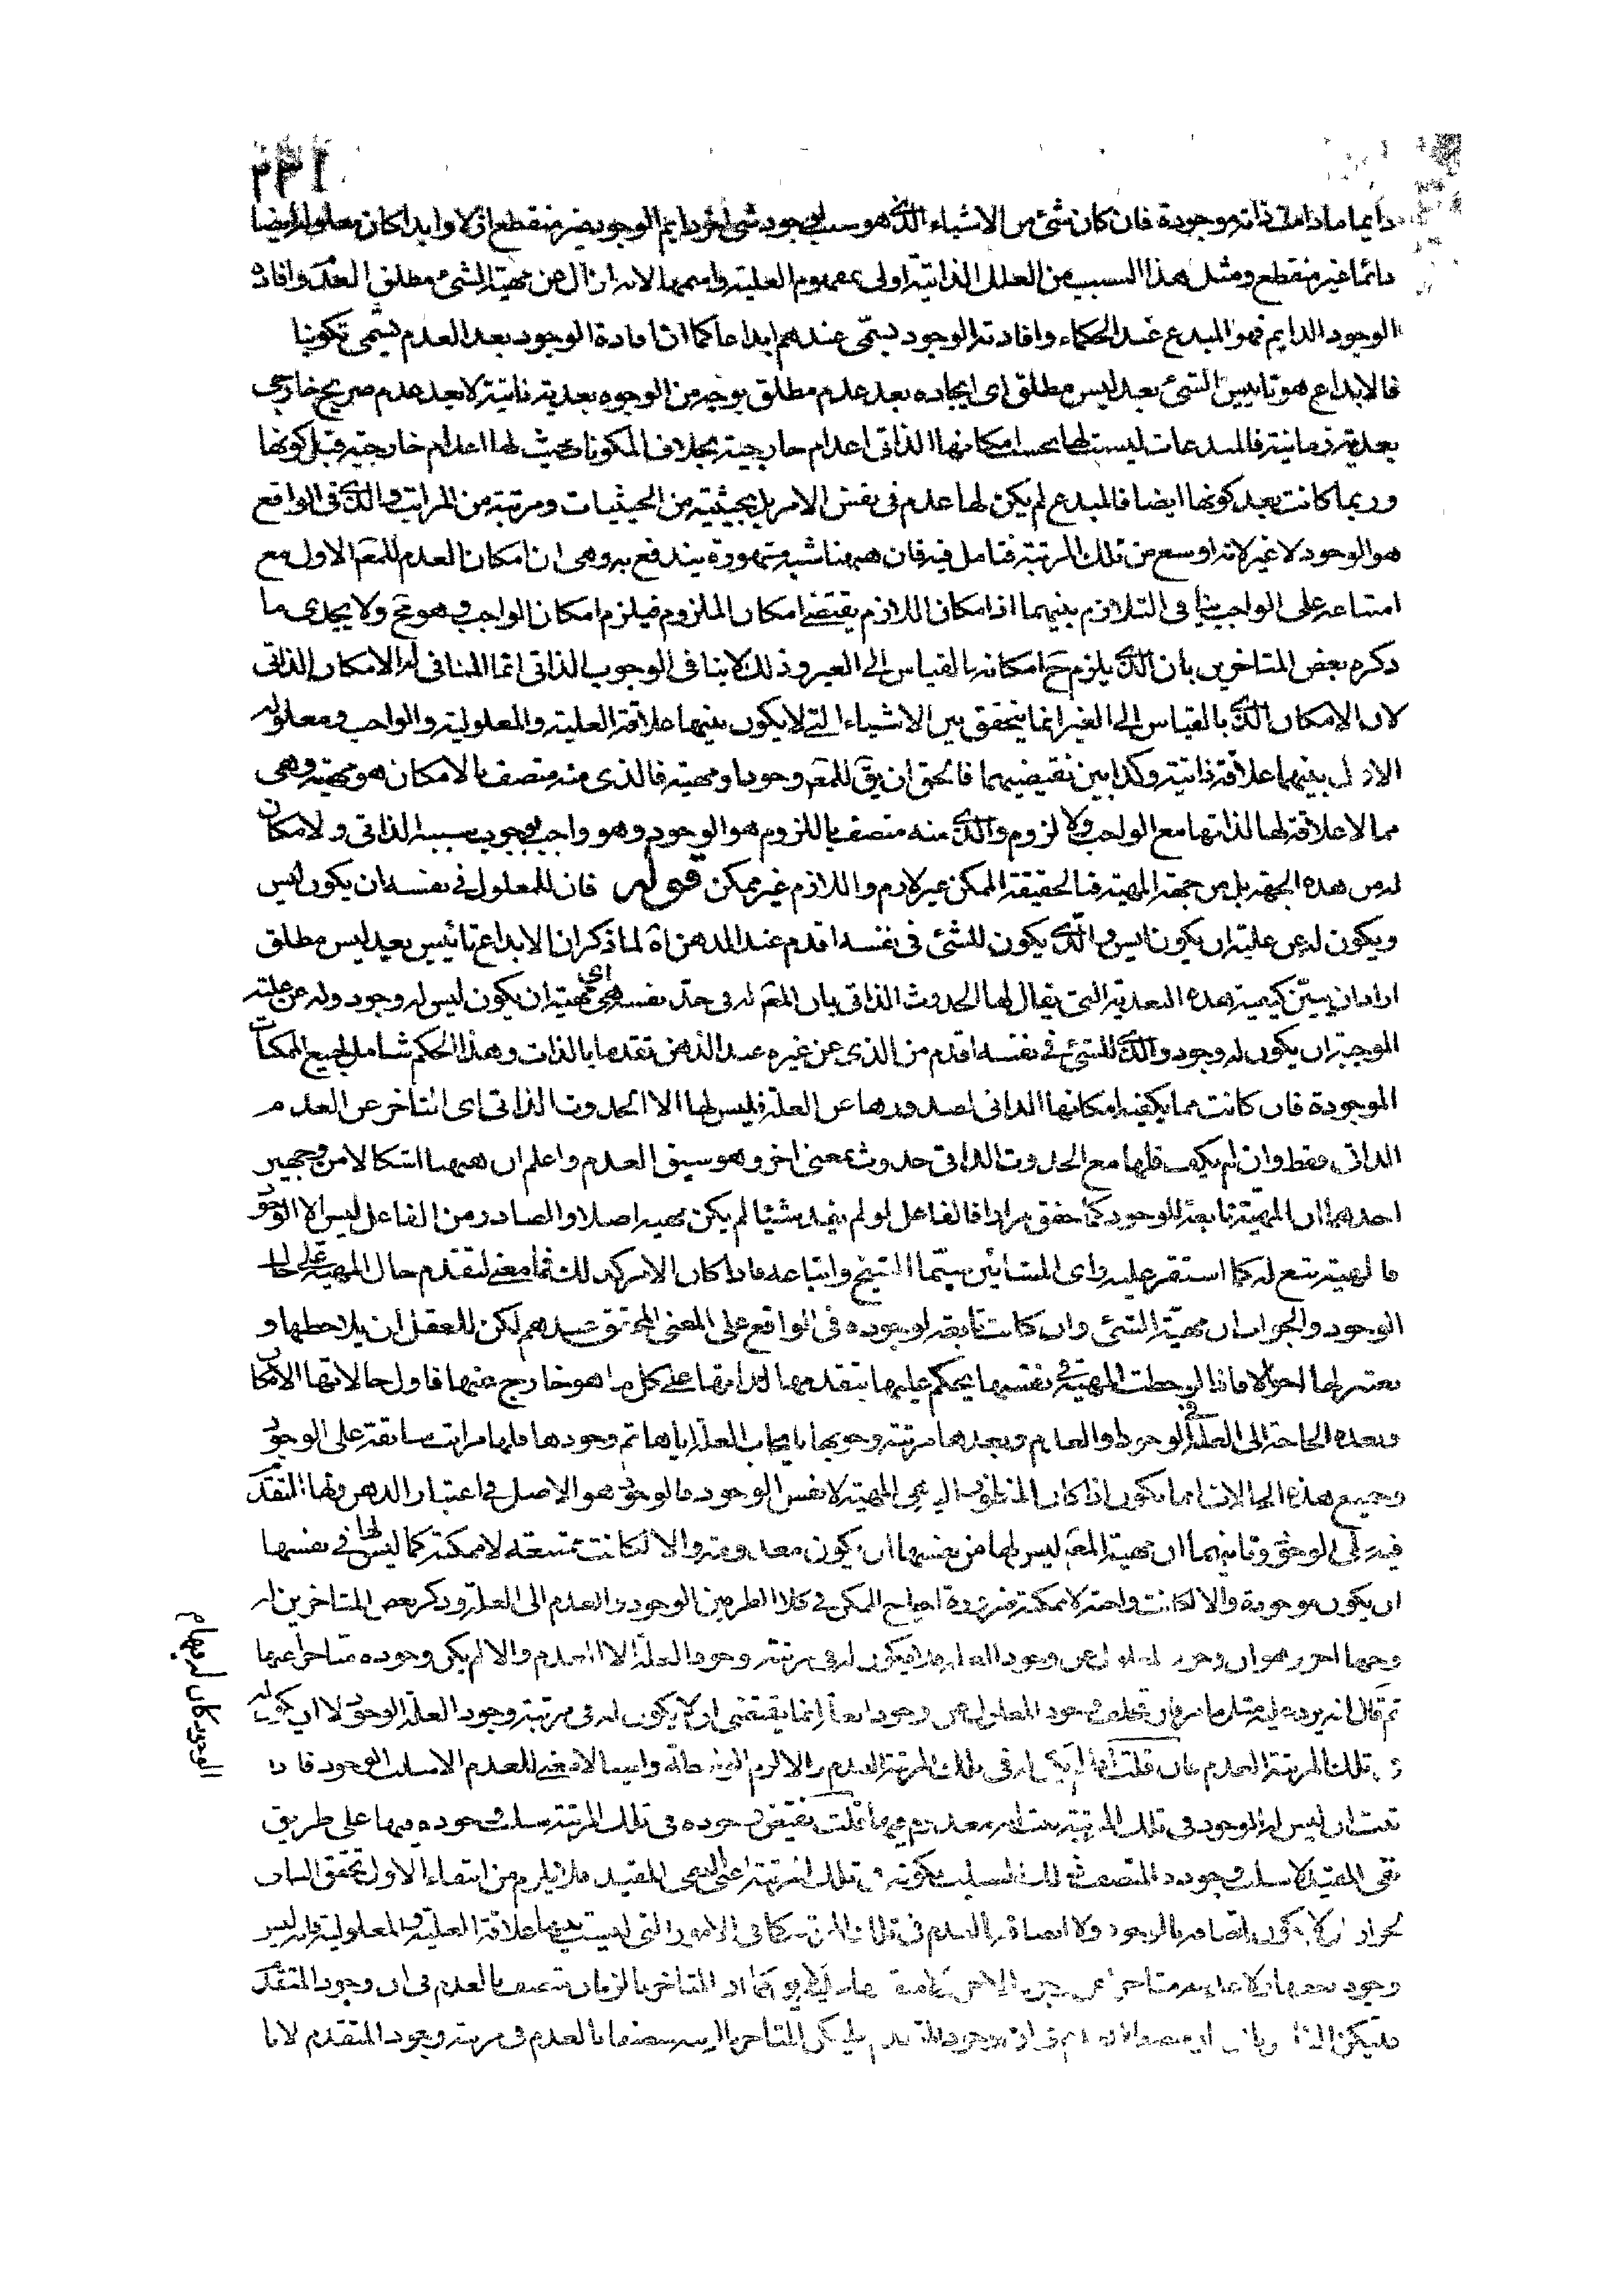 ٢٣١
دايما مادامت ذاته موجودة فان كان شئ من الاشياء الذى هو سبب لوجود شئ اخر دايم الوجود غير منقطع ازلا وابدا كان معلوله ايضا
دائما غير منقطع ومثل هذا السبب من العلل الذاتية اولى بمفهوم العلية واسمها لانه ازال عن مهية الشئ مطلق العدم وافاد
الوجود الدايم فهو المبدع عند الحكماء وافادته الوجود يسمى عندهم ابداعا كما ان افادة الوجود بعد العدم يسمى تكوينا
فالابداع هو تاييس الشئ بعد ليس مطلق اى ايجاده بعد عدم مطلق بوجه من الوجوه بعدية ذاتية لا بعد عدم صريح خارجى
بعدية زمانية فالمبدعات ليست لها بحسب امكانها الذاتى اعدام خارجية بخلاف المكونات حيث لها اعدام خارجية قبل كونها
وربما كانت بعد كونها ايضا فالمبدع لم يكن لها عدم فى نفس الامر بل بحيثية من الحيثيات ومرتبة من المراتب والذى فى الواقع
هو الوجود لا غير لانه اوسع من تلك المرتبة فتامل فيه فان ههنا شبهة مشهورة يندفع به وهى ان امكان العدم للمعلم الاول مع
امتناعه على الواجب ينافى التلازم بينهما اذ امكان اللازم يقتضى امكان الملزوم فيلزم امكان الواجب وهو مح ولا يجدى ما
ذكره بعض المتاخرين بان الذى يلزم ح امكانه بالقياس الى الغير وذلك لا ينافى الوجوب الذاتى انما المنافى له الامكان الذاتى
لان الامكان الذى بالقياس الى الغير انما يتحقق بين الاشياء التى لا يكون بينها علاقة العلية والمعلولية والواجب ومعلوله
الاول بينهما علاقة ذاتية وكذا بين نقيضيهما فالحق ان يق للمعلم وجودا ومهية فالذى منه متصف بالامكان هو مهيته وهى
مما لا علاقة لها لذاتها مع الواجب ولا لزوم والذى منه متصف باللزوم هو الوجود وهو واجب بوجوب سببه الذاتى ولا امكان
له من هذه الجهة بل من جهة المهية فبالحقيقة الممكن غير لازم واللازم غير ممكن قوله فان للمعلول فى نفسه ان يكون ليس
ويكون له عن علته ان يكون ايس والذى يكون للشئ فى نفسه اقدم عند الذهن اه لما ذكر ان الابداع تاييس بعد ليس مطلق
اراد ان يبين كيفية هذه البعدية التى يقال لها الحدوث الذاتى بان المعلم له فى حد نفسه اى مهيته ان يكون ليس له وجود وله عن علته
الموجبة ان يكون له وجود والذى للشئ فى نفسه اقدم من الذى عن غيره عند الذهن تقدما بالذات وهذا الحكم شامل لجميع الممكنات
الموجودة فان كانت مما يكفيه امكانها الذاتى لصدورها عن العلة فليس لها الا الحدوث الذاتى اى التاخر عن العدم
الذاتى فقط وان لم يكف فلها مع الحدوث الذاتى حدوث بمعنى اخر وهو سبق العدم واعلم ان ههنا اشكالا من وجهين
احدهما ان المهية تابعة للوجود كما حقق مرارا فالفاعل لو لم يفد شيئا لم يكن مهية اصلا والصادر من الفاعل ليس الا الوجود
فالمهية تتبع له كما استقر عليه راى المشائين سيما الشيخ واتباعه فاذا كان الامر كذلك فما معنى لتقدم حال المهية على حال
الوجود والجواب ان مهية الشئ وان كانت تابعة لوجوده فى الواقع على المعنى المحقق عندهم لكن للعقل ان يلاحظها و
يعتبر لها احوالا فاذا لوحظت المهية فى نفسها يحكم عليها بتقدمها لذاتها على كل ما هو خارج عنها فاول حالاتها الامكان
وبعده الحاجة الى العلة فى الوجود والعدم وبعدها مرتبة وجوبها بايجاب العلة اياها ثم وجودها فلها مراتب سابقة على الوجود
وجميع هذه الحالات انما يكون اذا كان المنظور اليه هى المهية لا نفس الوجود فالوجود هو الاصل فى اعتبار الذهن ولها التقدم
فيه على الوجود وثانيهما ان مهية المعلم ليس لها من نفسها ان يكون معدومة والا لكانت ممتنعة لا ممكنة كما ليس لها فى نفسها
ان يكون موجودة والا لكانت واجبة لا ممكنة ضرورة احتياج الممكن فى كلا الطرفين الوجود والعدم الى العلة وذكر بعض المتاخرين ان
وجها اخر وهو ان وجود المعلول عن وجود العلة فلا يكون له فى مرتبة وجود العلة الا العدم والا لم يكن وجوده متاخرا عنها
ثم قال انه يرد عليه مثل ما مر فان تخلف وجود المعلول عن وجود العلة انما يقتضى ان لا يكون له فى مرتبة وجود العلة الوجود لا ان يكون له
فى تلك المرتبة العدم فان قلت اذا لم يكن له فى تلك المرتبة العدم والا لزم الواسطة وايضا لا معنى للعدم الا سلب الوجود فاذا
ثبت ان ليس له الوجود فى تلك المرتبة ثبت انه معدوم فيها قلت نقيض وجوده فى تلك المرتبة سلب وجوده فيها على طريق
نفى المقيد لا سلب وجوده المتصف ذلك السلب بكونه فى تلك المرتبة اعنى النفى المقيد فلا يلزم من انتفاء الاول تحقق الثانى
لجواز ان لا يكون اتصافه بالوجود ولا اتصافه بالعدم فى تلك المرتبة كما فى الامور التى ليست بينها علاقة العلية والمعلولية فانه ليس
وجود بعضها ولا عدمه متاخرا عن وجود الاخر المتاخر بالزمان متصف بالعدم فى ان وجود المتقدم
فليكن المتاخر متصفا بالعدم فى مرتبة وجود المتقدم لانا
الوجود كان له بهام